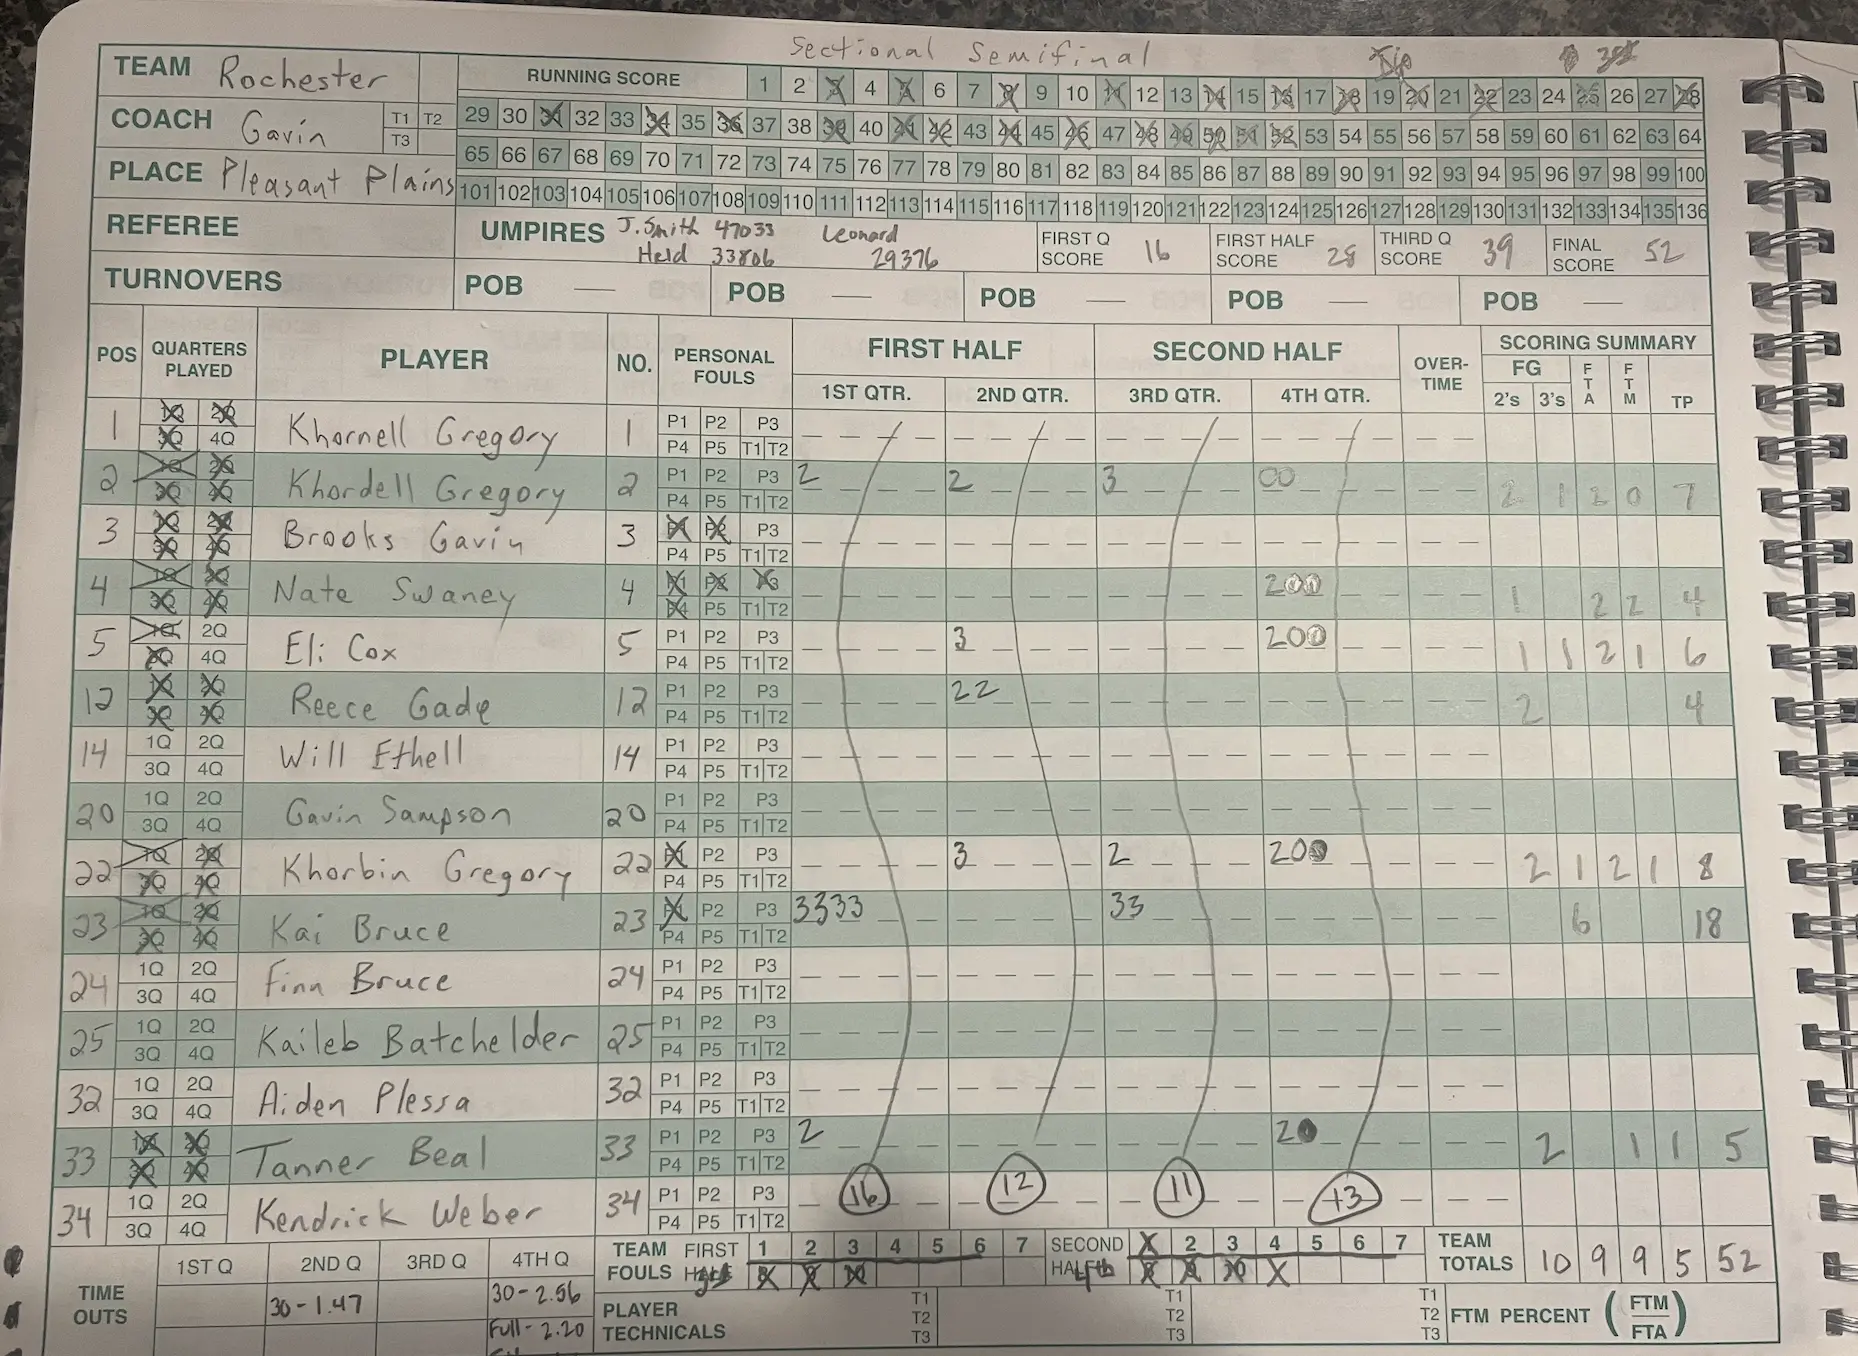 Sectional Semifinal
TEAM Rochester
COACH Gavin T1 T2 T3
PLACE Pleasant Plains
RUNNING SCORE 1 2 3 4 5 6 7 8 9 10 11 12 13 14 15 16 17 18 19 20 21 22 23 24 25 26 27 28
29 30 31 32 33 34 35 36 37 38 39 40 41 42 43 44 45 46 47 48 49 50 51 52 53 54 55 56 57 58 59 60 61 62 63 64
65 66 67 68 69 70 71 72 73 74 75 76 77 78 79 80 81 82 83 84 85 86 87 88 89 90 91 92 93 94 95 96 97 98 99 100
101 102 103 104 105 106 107 108 109 110 111 112 113 114 115 116 117 118 119 120 121 122 123 124 125 126 127 128 129 130 131 132 133 134 135 136
REFEREE
UMPIRES J. Smith 47033 Leonard
Held 33806 29376
FIRST Q SCORE 16
FIRST HALF SCORE 28
THIRD Q SCORE 39
FINAL SCORE 52
TURNOVERS POB — POB — POB — POB — POB —
POS QUARTERS PLAYED PLAYER NO. PERSONAL FOULS FIRST HALF SECOND HALF OVER-TIME SCORING SUMMARY
1ST QTR. 2ND QTR. 3RD QTR. 4TH QTR. FG 2's 3's FTA FTM TP
1 1Q 2Q Khornell Gregory 1 P1 P2 P3
3Q 4Q P4 P5 T1 T2
2 1Q 2Q Khordell Gregory 2 P1 P2 P3 2 2 3 00 2 1 2 0 7
3Q 4Q P4 P5 T1 T2
3 1Q 2Q Brooks Gavin 3 P1 P2 P3
3Q 4Q P4 P5 T1 T2
4 1Q 2Q Nate Swaney 4 P1 P2 P3 200 1 2 2 4
3Q 4Q P4 P5 T1 T2
5 1Q 2Q Eli Cox 5 P1 P2 P3 3 200 1 1 2 1 6
3Q 4Q P4 P5 T1 T2
12 1Q 2Q Reece Gade 12 P1 P2 P3 22 2 4
3Q 4Q P4 P5 T1 T2
14 1Q 2Q Will Ethell 14 P1 P2 P3
3Q 4Q P4 P5 T1 T2
20 1Q 2Q Gavin Sampson 20 P1 P2 P3
3Q 4Q P4 P5 T1 T2
22 1Q 2Q Khorbin Gregory 22 P1 P2 P3 3 2 200 2 1 2 1 8
3Q 4Q P4 P5 T1 T2
23 1Q 2Q Kai Bruce 23 P1 P2 P3 3333 33 6 18
3Q 4Q P4 P5 T1 T2
24 1Q 2Q Finn Bruce 24 P1 P2 P3
3Q 4Q P4 P5 T1 T2
25 1Q 2Q Kaileb Batchelder 25 P1 P2 P3
3Q 4Q P4 P5 T1 T2
32 1Q 2Q Aiden Plessa 32 P1 P2 P3
3Q 4Q P4 P5 T1 T2
33 1Q 2Q Tanner Beal 33 P1 P2 P3 2 20 2 1 1 5
3Q 4Q P4 P5 T1 T2
34 1Q 2Q Kendrick Weber 34 P1 P2 P3 16 12 11 13
3Q 4Q P4 P5 T1 T2
TIME OUTS 1ST Q 2ND Q 3RD Q 4TH Q
30-1.47 30-2.56
Full-2.20
TEAM FOULS FIRST HALF 1 2 3 4 5 6 7
8 9 10
SECOND HALF 4th 1 2 3 4 5 6 7
8 9 10
TEAM TOTALS 10 9 9 5 52
PLAYER TECHNICALS T1 T2 T3 T1 T2 T3 T1 T2 T3
FTM PERCENT (FTM/FTA)